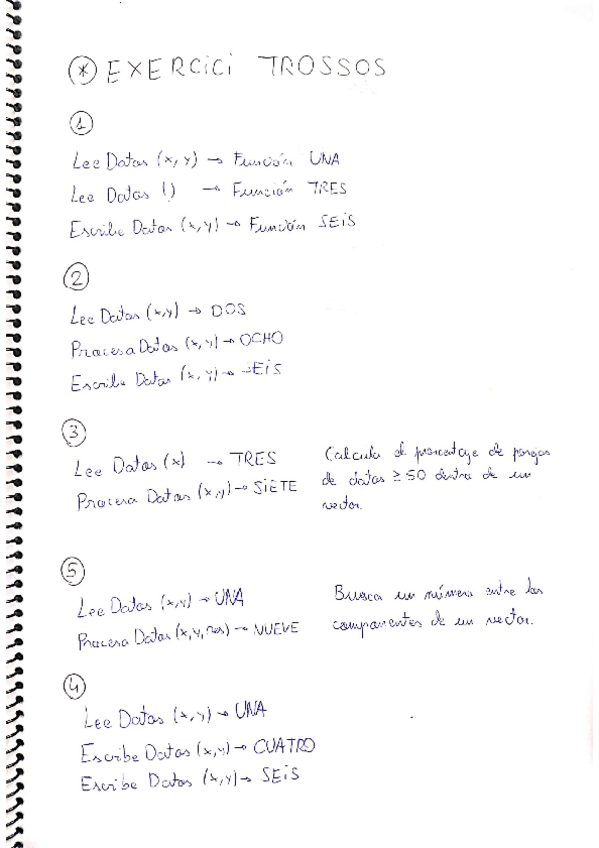 * EXERCICI TROSSOS
1
Lee Datos (x, y) → Función UNA
Lee Datos () → Función TRES
Escribe Datos (x, y) → Función SEIS
2
Lee Datos (x,y) → DOS
Procesa Datos (x, y) → OCHO
Escribe Datos (x, y) → SEIS
3
Lee Datos (x) → TRES
Procesa Datos (x, y) → SIETE
Calcula el porcentaje de parejas
de datos ≥ 50 dentro de un
vector.
5
Lee Datos (x,y) → UNA
Procesa Datos (x, y, res) → NUEVE
Busca un número entre las
componentes de un vector.
4
Lee Datos (x, y) → UNA
Escribe Datos (x, y) → CUATRO
Escribe Datos (x, y) → SEIS